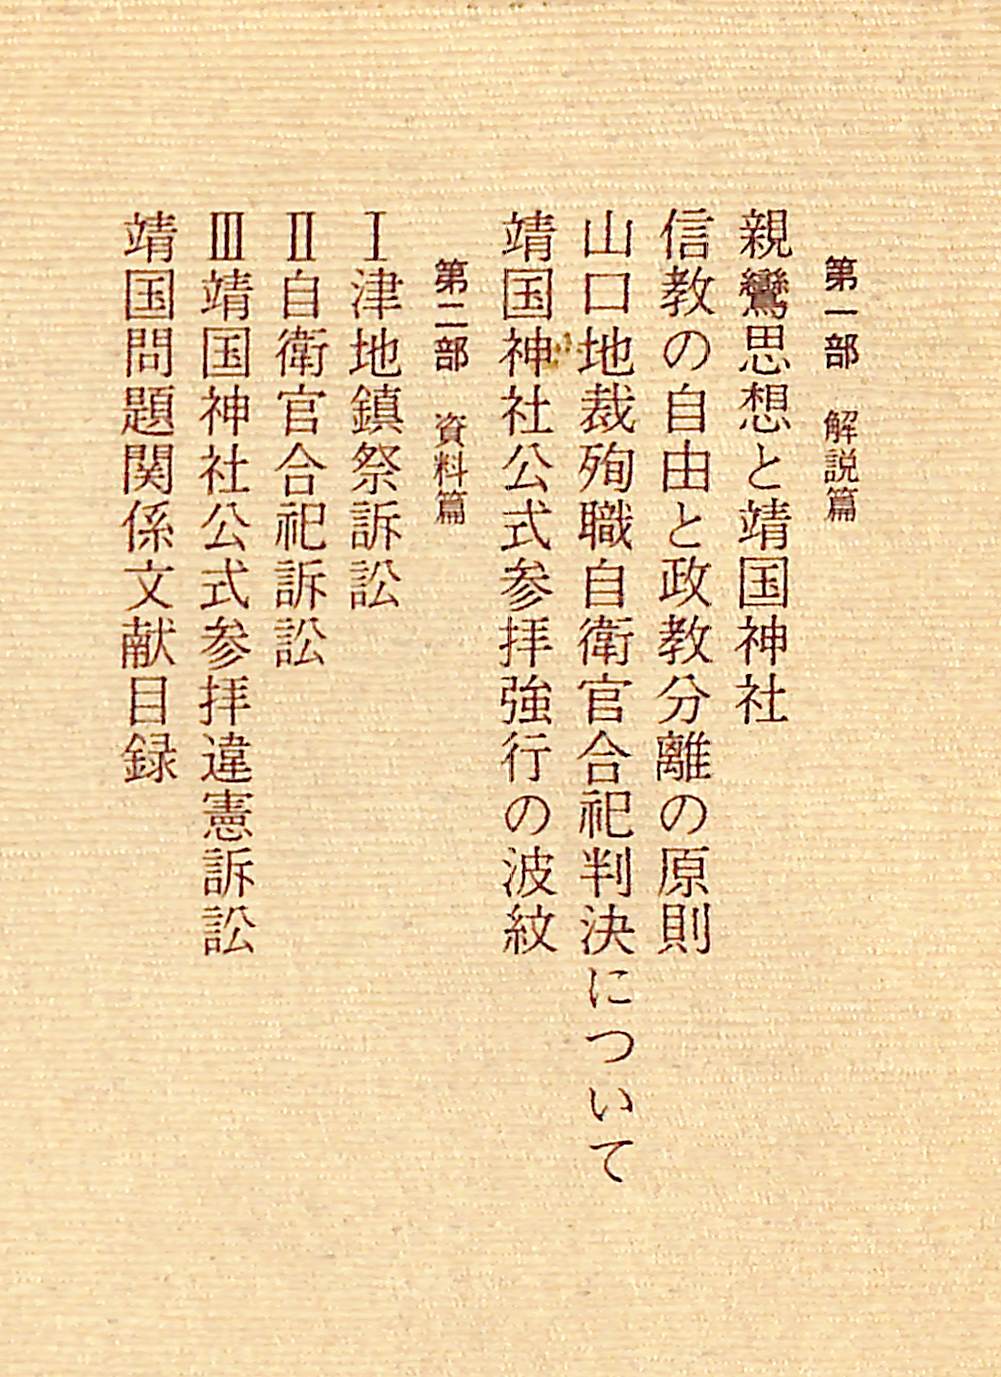 第一部 解説篇
親鸞思想と靖国神社
信教の自由と政教分離の原則
山口地裁殉職自衛官合祀判決について
靖国神社公式参拝強行の波紋
第二部 資料篇
Ⅰ津地鎮祭訴訟
Ⅱ自衛官合祀訴訟
Ⅲ靖国神社公式参拝違憲訴訟
靖国問題関係文献目録